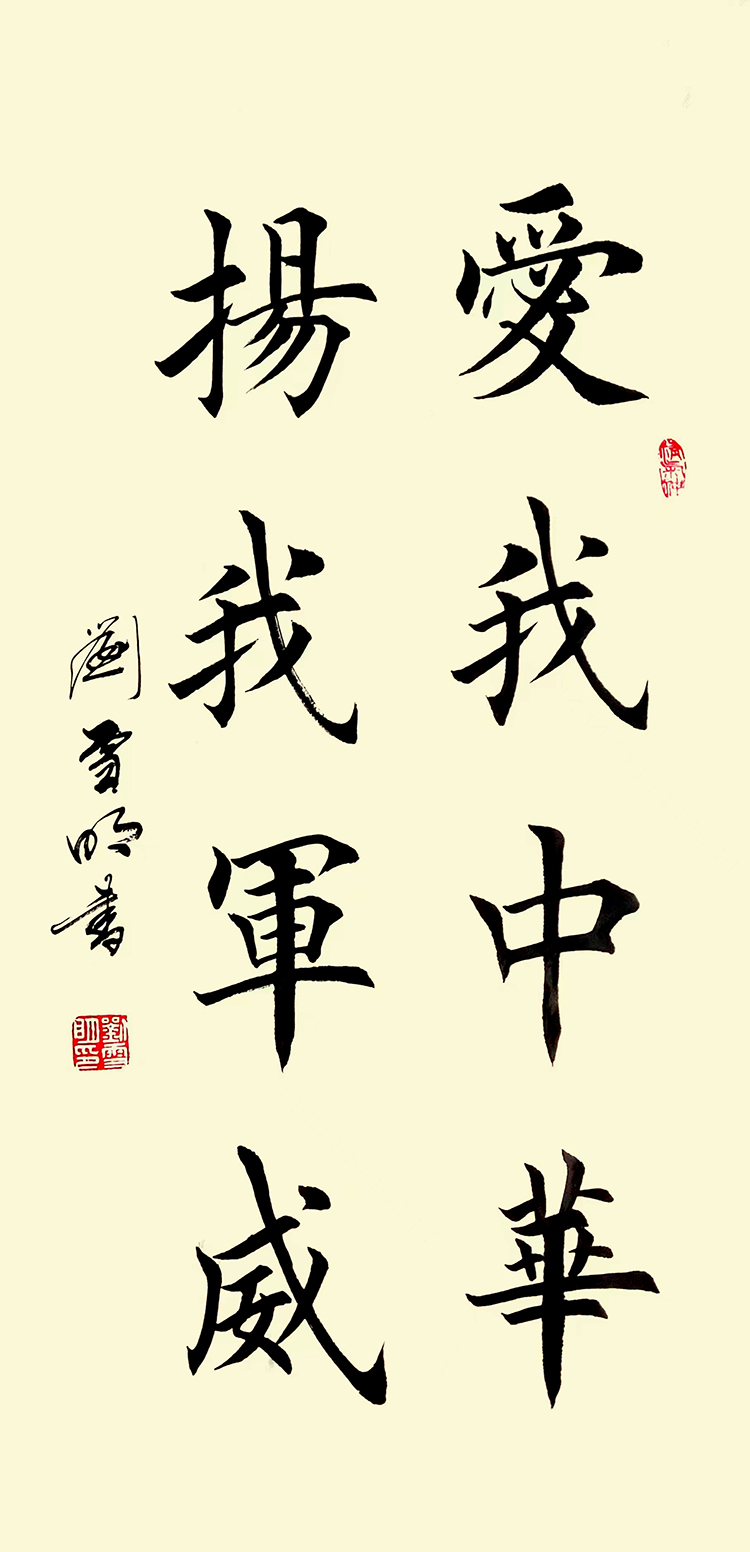 愛我中華
揚我軍威
劉雪明書
劉雪明印